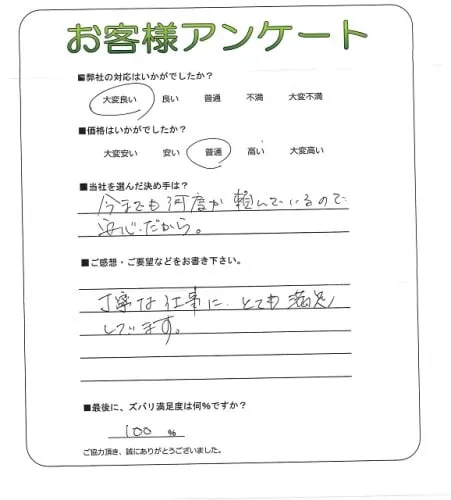 お客様アンケート
■弊社の対応はいかがでしたか?
大変良い 良い 普通 不満 大変不満
■価格はいかがでしたか?
大変安い 安い 普通 高い 大変高い
■当社を選んだ決め手は?
今までも何度か頼んでいるので
安心だから。
■ご感想・ご要望などをお書き下さい。
丁寧な仕事に、とても満足
しています。
■最後に、ズバリ満足度は何%ですか?
100 %
ご協力頂き、誠にありがとうございました。